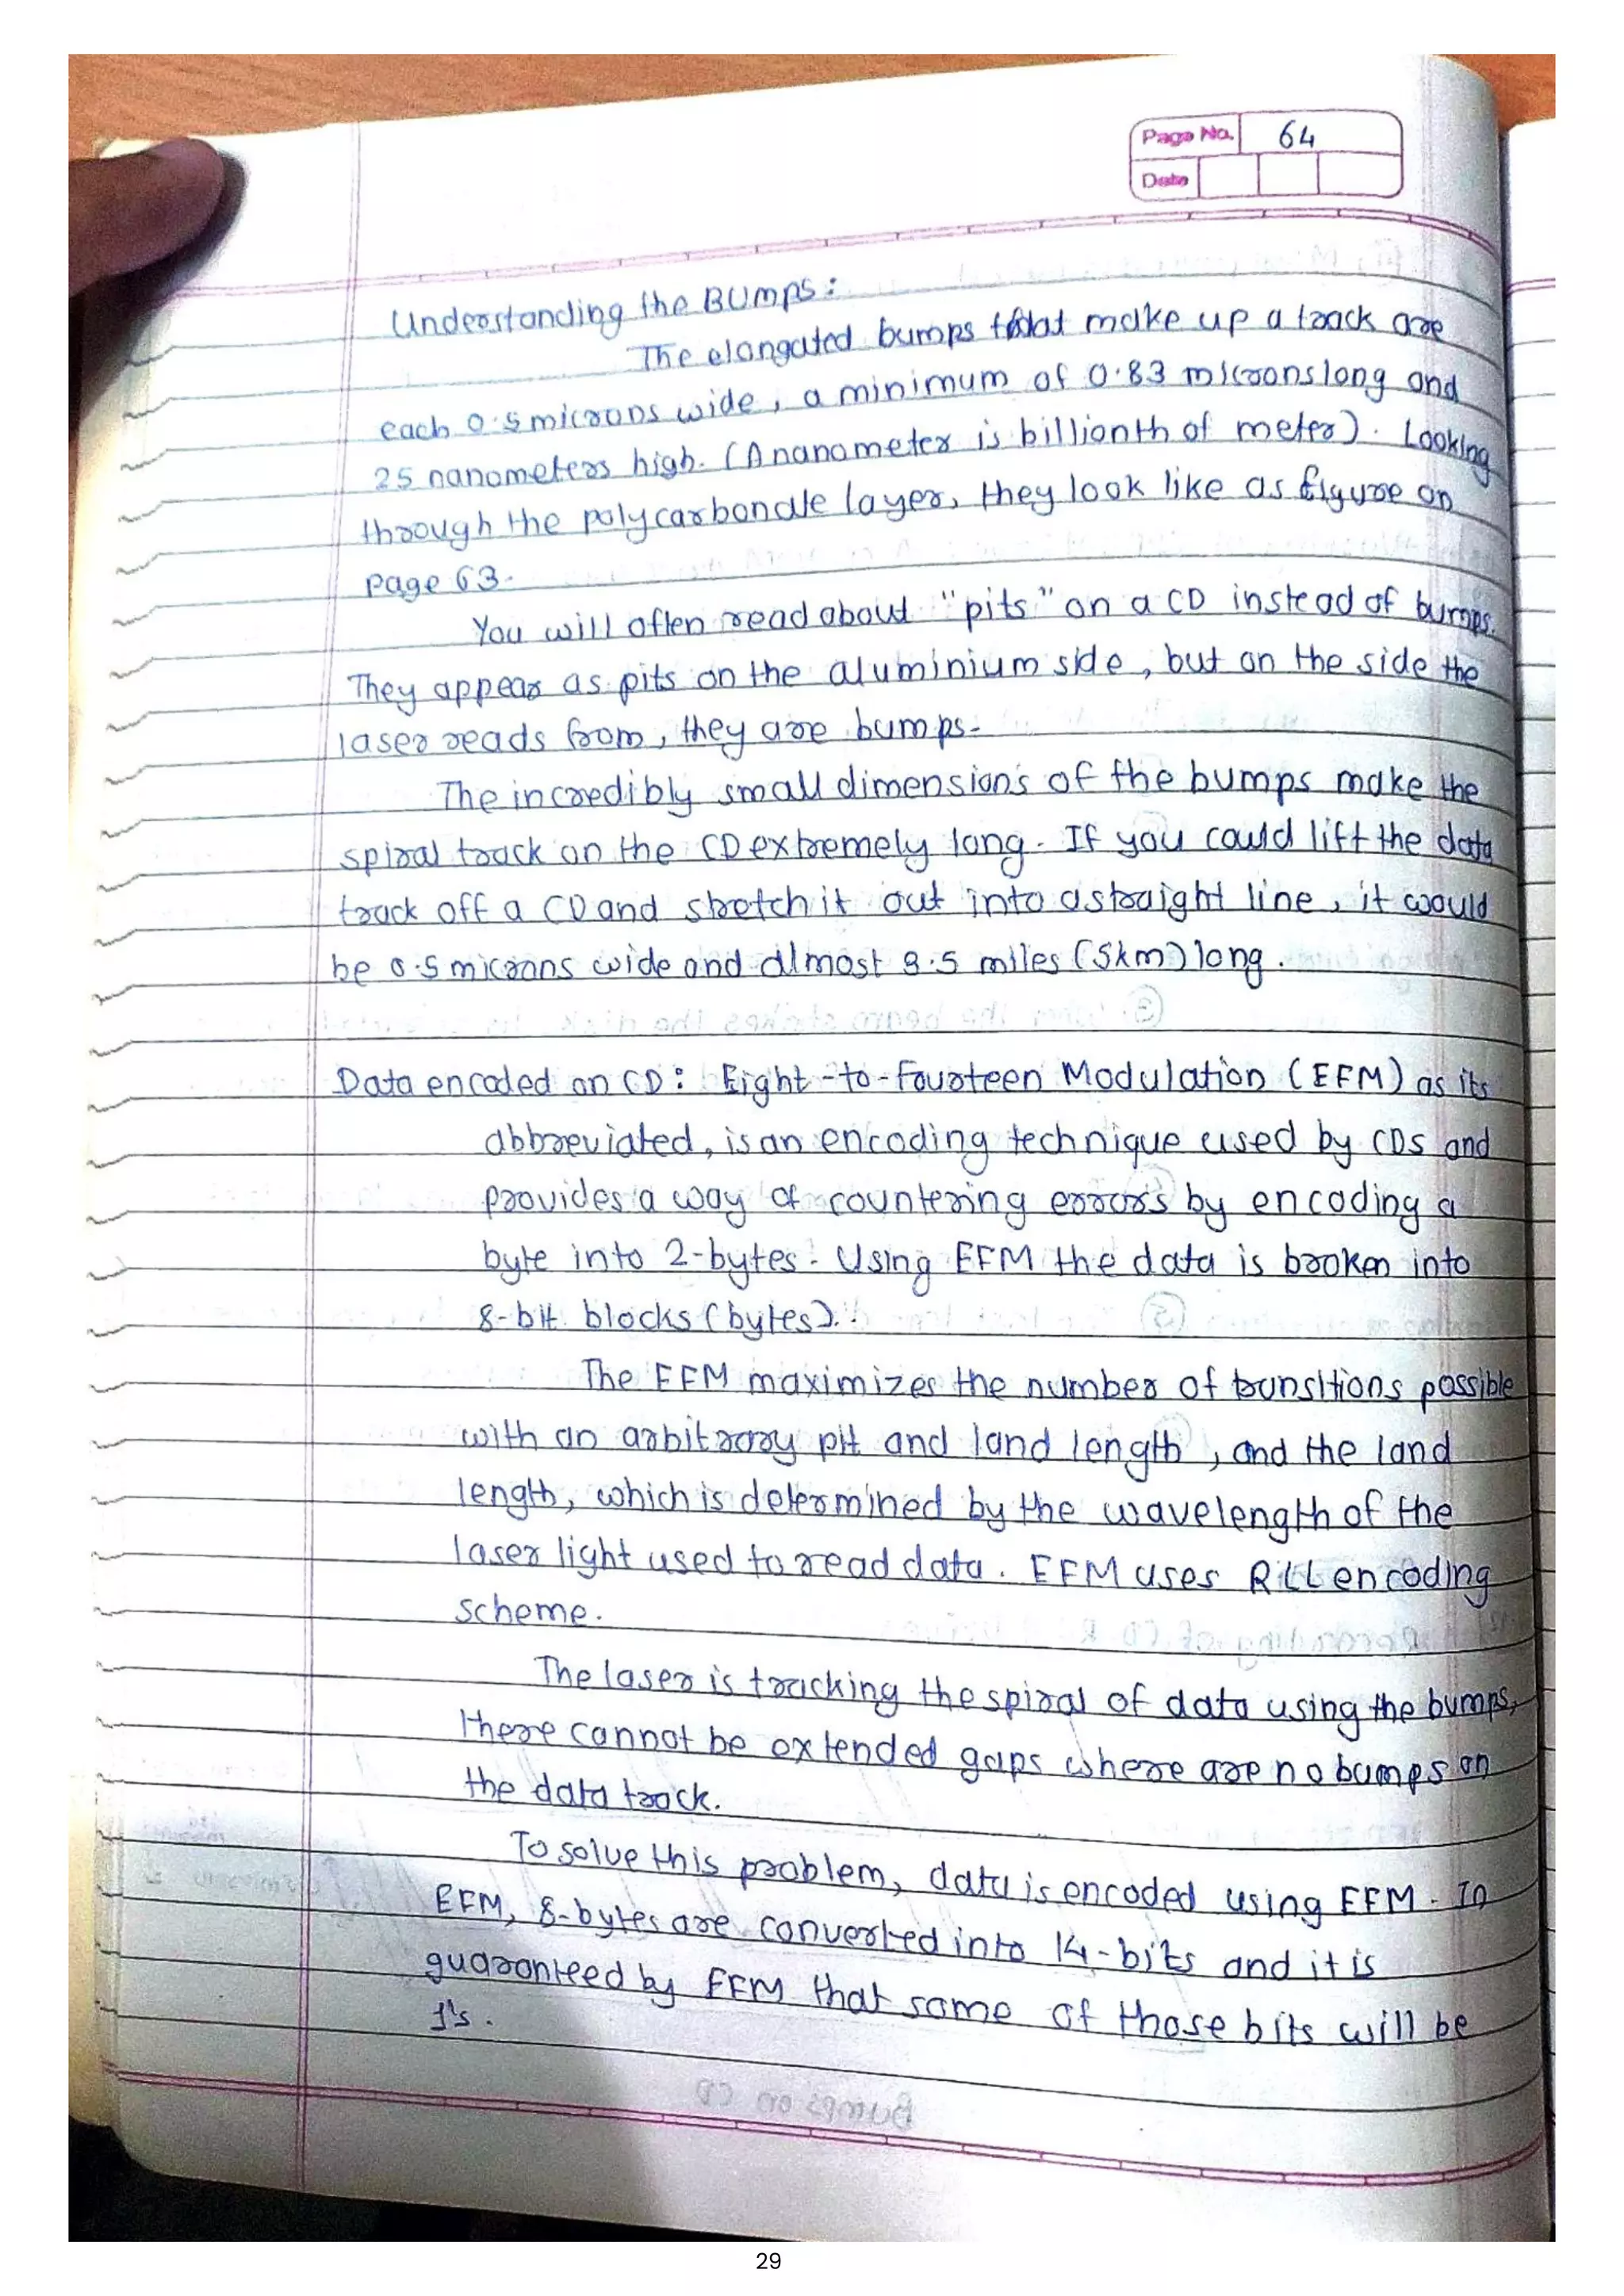 Page No. 64
Date
Understanding the Bumps:
The elongated bumps that make up a track are
each 0.5 microns wide, a minimum of 0.83 microns long and
25 nanometers high. (A nanometer is billionth of meter). Looking
through the polycarbonate layer, they look like as figure on
page 63.
You will often read about "pits" on a CD instead of bumps.
They appear as pits on the aluminium side, but on the side the
laser reads from, they are bumps.
The incredibly small dimensions of the bumps make the
spiral track on the CD extremely long. If you could lift the data
track off a CD and stretch it out into a straight line, it would
be 0.5 microns wide and almost 3.5 miles (5km) long.
Data encoded on CD: Eight-to-Fourteen Modulation (EFM) as its
abbreviated, is an encoding technique used by CDs and
provides a way of countering errors by encoding a
byte into 2-bytes. Using EFM the data is broken into
8-bit blocks (bytes).
The EFM maximizes the number of transitions possible
with an arbitrary pit and land length, and the land
length, which is determined by the wavelength of the
laser light used to read data. EFM uses RLL encoding
scheme.
The laser is tracking the spiral of data using the bumps,
there cannot be extended gaps where are no bumps on
the data track.
To solve this problem, data is encoded using EFM. In
EFM, 8-bytes are converted into 14-bits and it is
guaranteed by EFM that some of those bits will be
1's.
29